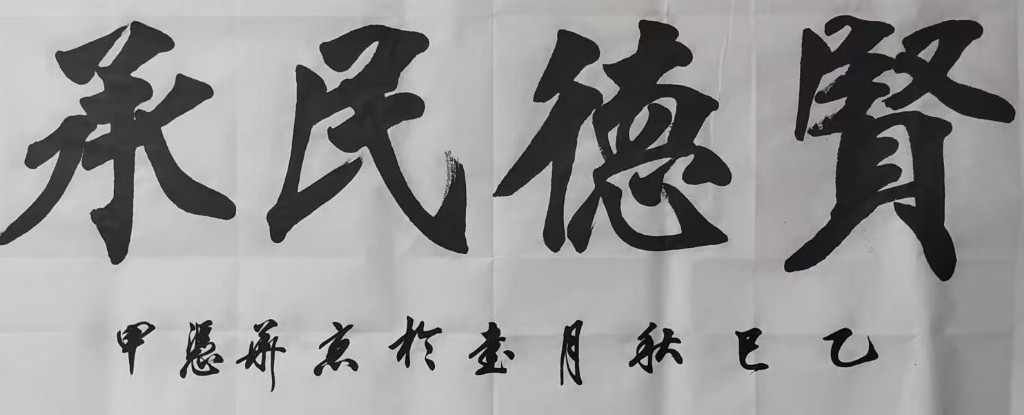 賢德民承
乙巳秋月書於京華憑甲